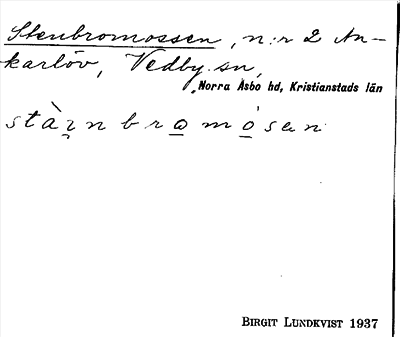 Stenbromossen, n:r 2 An-
karlöv, Vedby sn,
Norra Åsbo hd, Kristianstads län
BIRGIT LUNDKVIST 1937